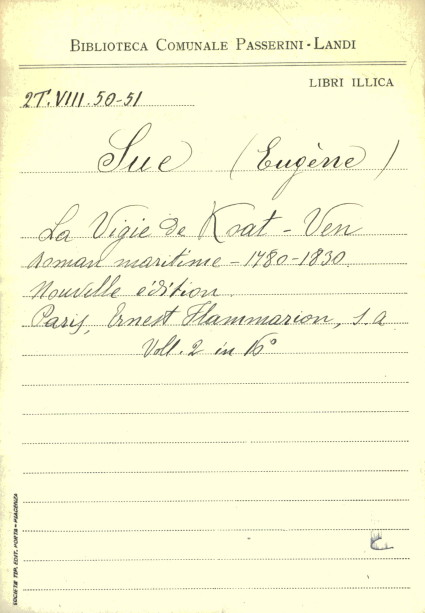 BIBLIOTECA COMUNALE PASSERINI-LANDI
LIBRI ILLICA
2T.VIII.50-51
Sue (Eugène)
La Vigie de Koat-Ven
roman maritime - 1780-1830
Nouvelle édition.
Paris, Ernest Flammarion, s.a
Voll. 2 in 16°
SOCIETÀ TIP. EDIT. PORTA - PIACENZA